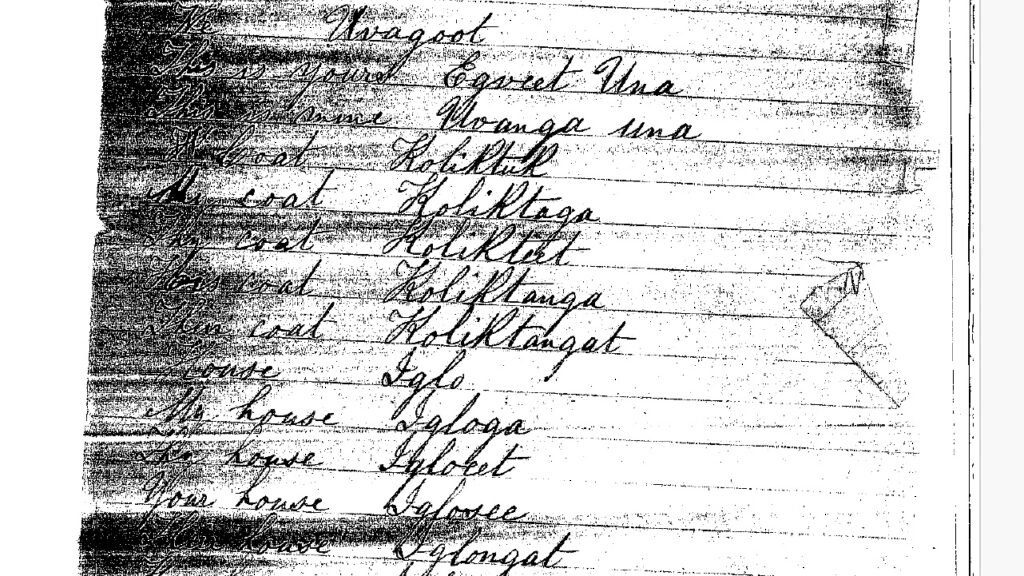 We Uvagoot
This is yours Egveet Una
This is mine Uvanga una
Coat Koliktuk
My coat Koliktaga
Thy coat Kolikteet
His coat Koliktanga
Their coat Koliktangat
House Iglo
My house Igloga
Thy house Igloeet
Your house Iglosee
house Iglongat